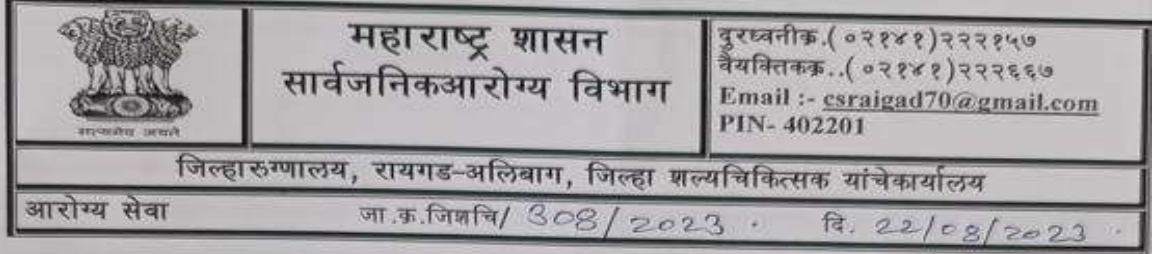 महाराष्ट्र शासन
सार्वजनिकआरोग्य विभाग
दुरध्वनीक्र.(०२१४१)२२२१५७
वैयक्तिकक्र..(०२१४१)२२२६६७
Email :- csraigad70@gmail.com
PIN- 402201
सत्यमेव जयते
जिल्हारुग्णालय, रायगड-अलिबाग, जिल्हा शल्यचिकित्सक यांचेकार्यालय
आरोग्य सेवा जा.क्र.जिशचि/ 308/2023 . दि. 22/08/2023 .